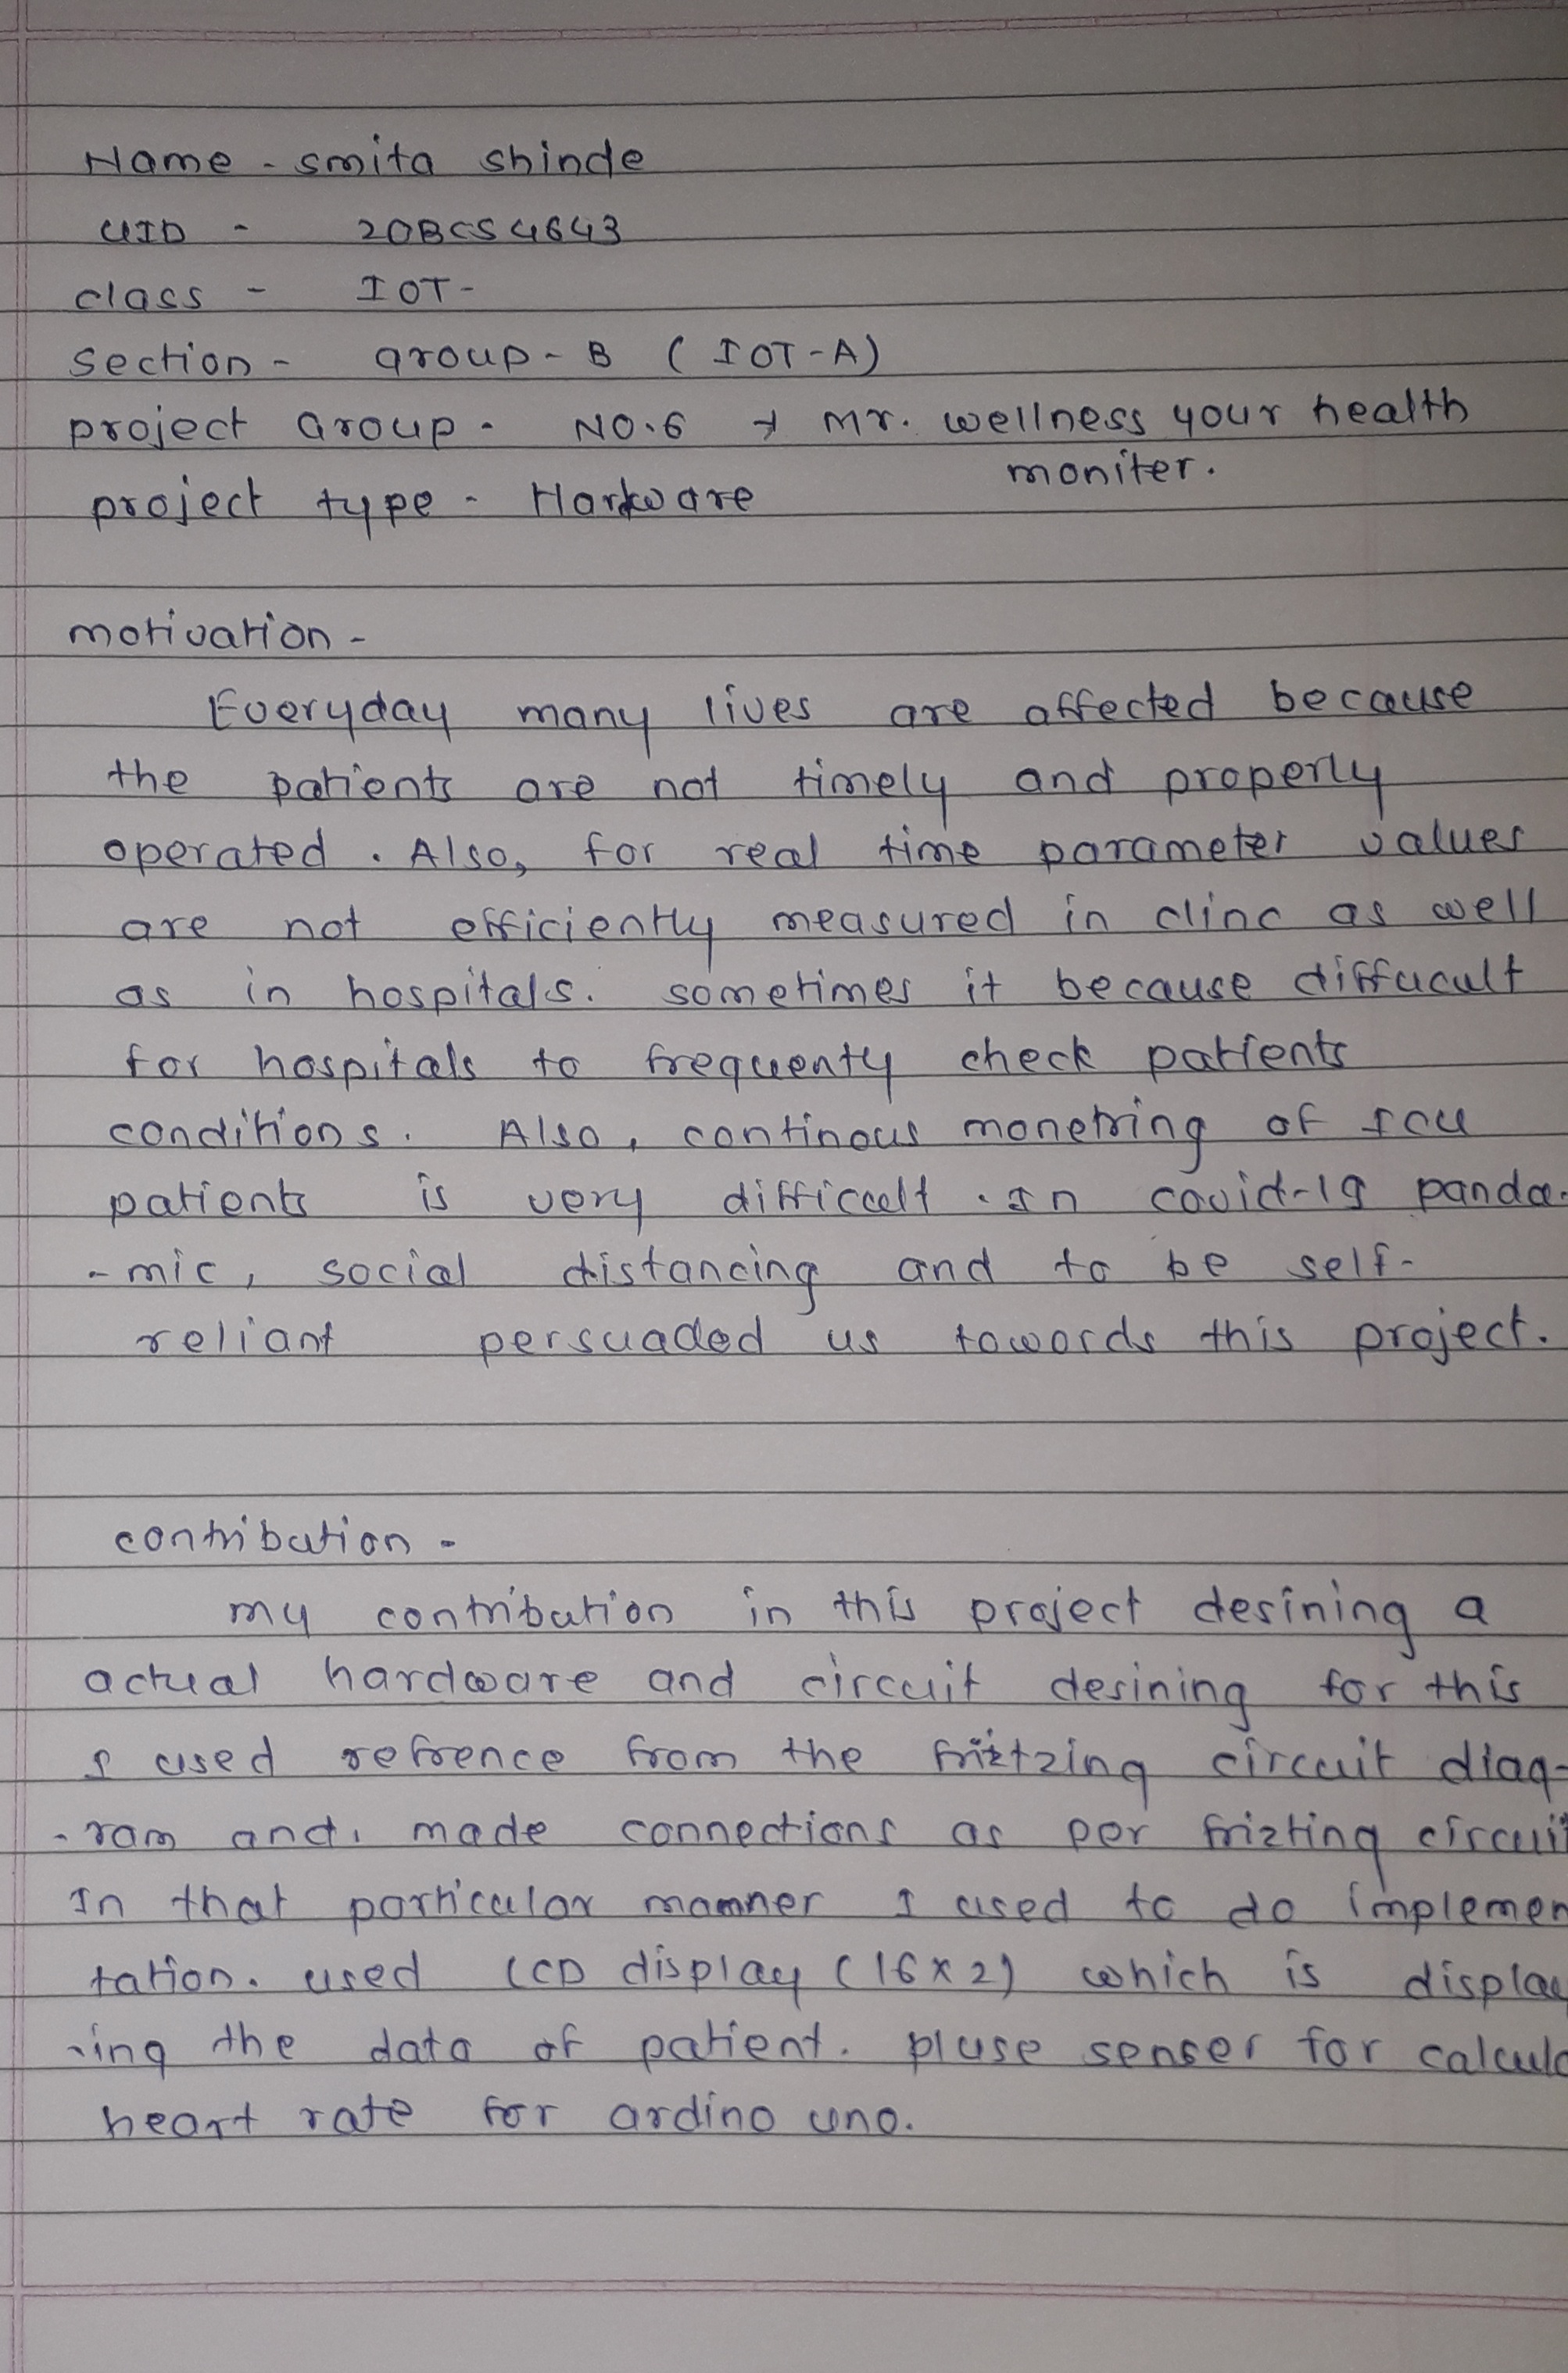 Name - smita shinde
UID - 20BCS4643
class - IOT-
section - Group - B ( IOT-A)
project Group - NO.6 → Mr. wellness your health
moniter.
project type - Harkware
motivation -
Everyday many lives are affected because
the patients are not timely and properly
operated . Also, for real time parameter values
are not efficiently measured in clinc as well
as in hospitals. sometimes it because diffucult
for hospitals to frequenty check patients
conditions. Also, continous monetring of ICU
patients is very difficult . In covid-19 panda-
-mic, social distancing and to be self-
reliant persuaded us towords this project.
contribution -
my contribution in this project desining a
actual hardware and circuit desining for this
I used refrence from the fritzing circuit diag-
-ram and. made connections as per frizting circuit
In that particular manner I used to do implemen
tation. used LCD display (16x2) which is display
-ing the data of patient. pluse senser for calcula
heart rate for ardino uno.